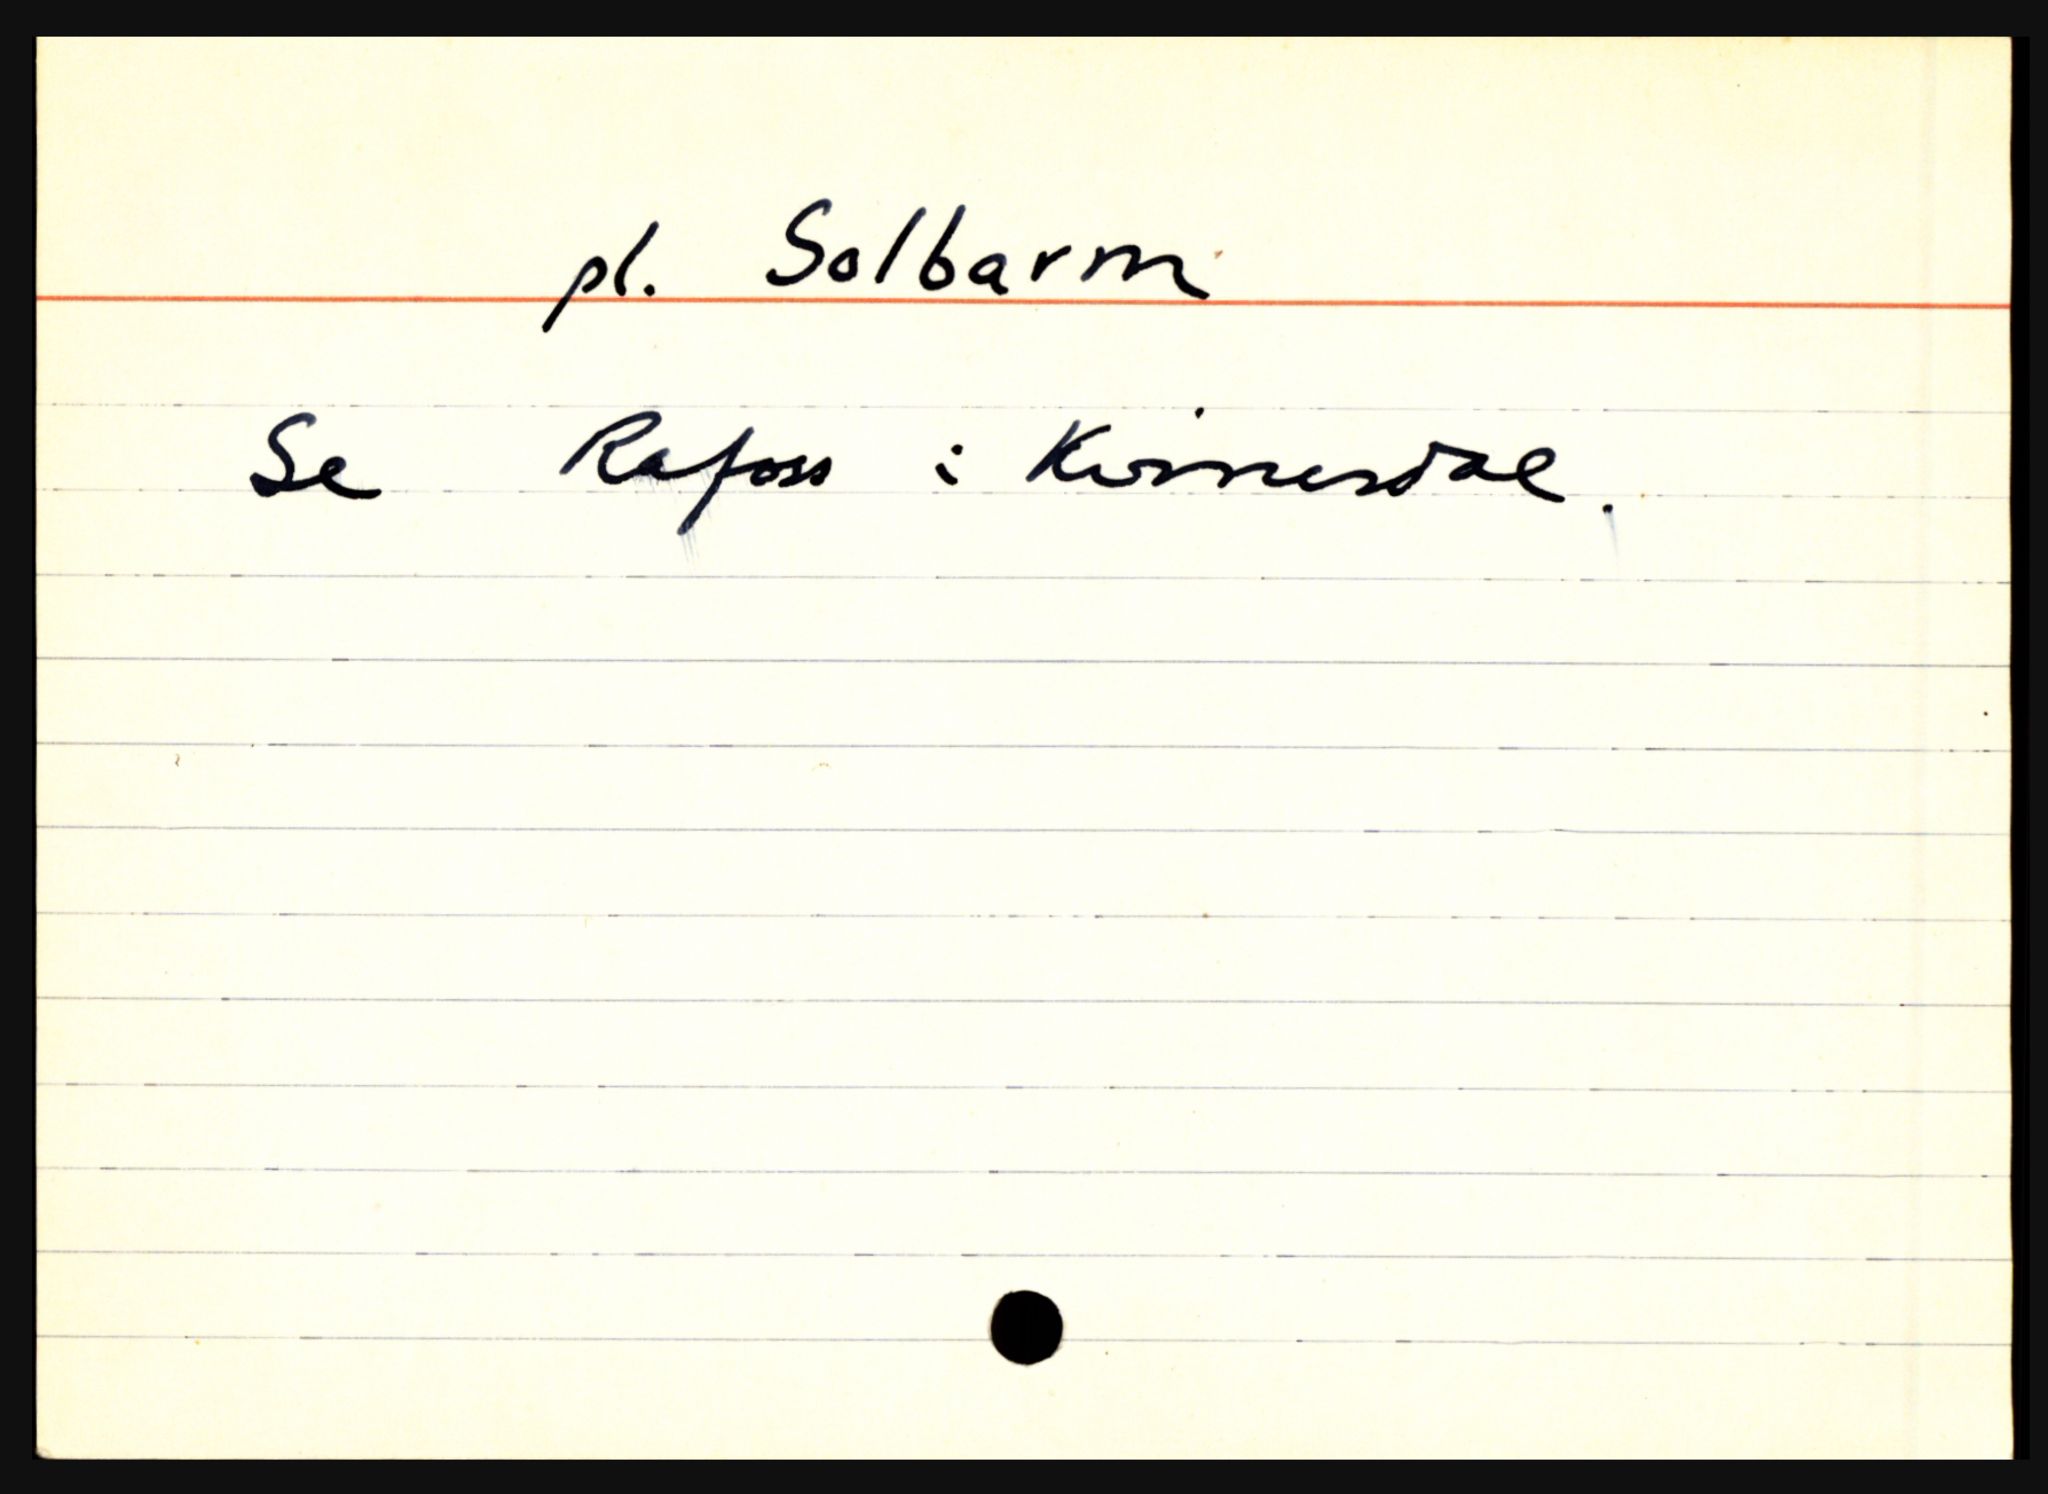 pl. Solbarm
Se Rafoss i Kvinesdal.